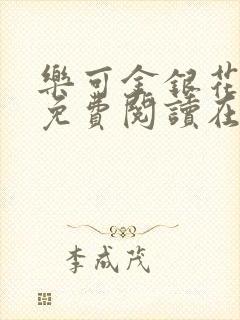 樂可金銀花
免費閱讀在
李成茂